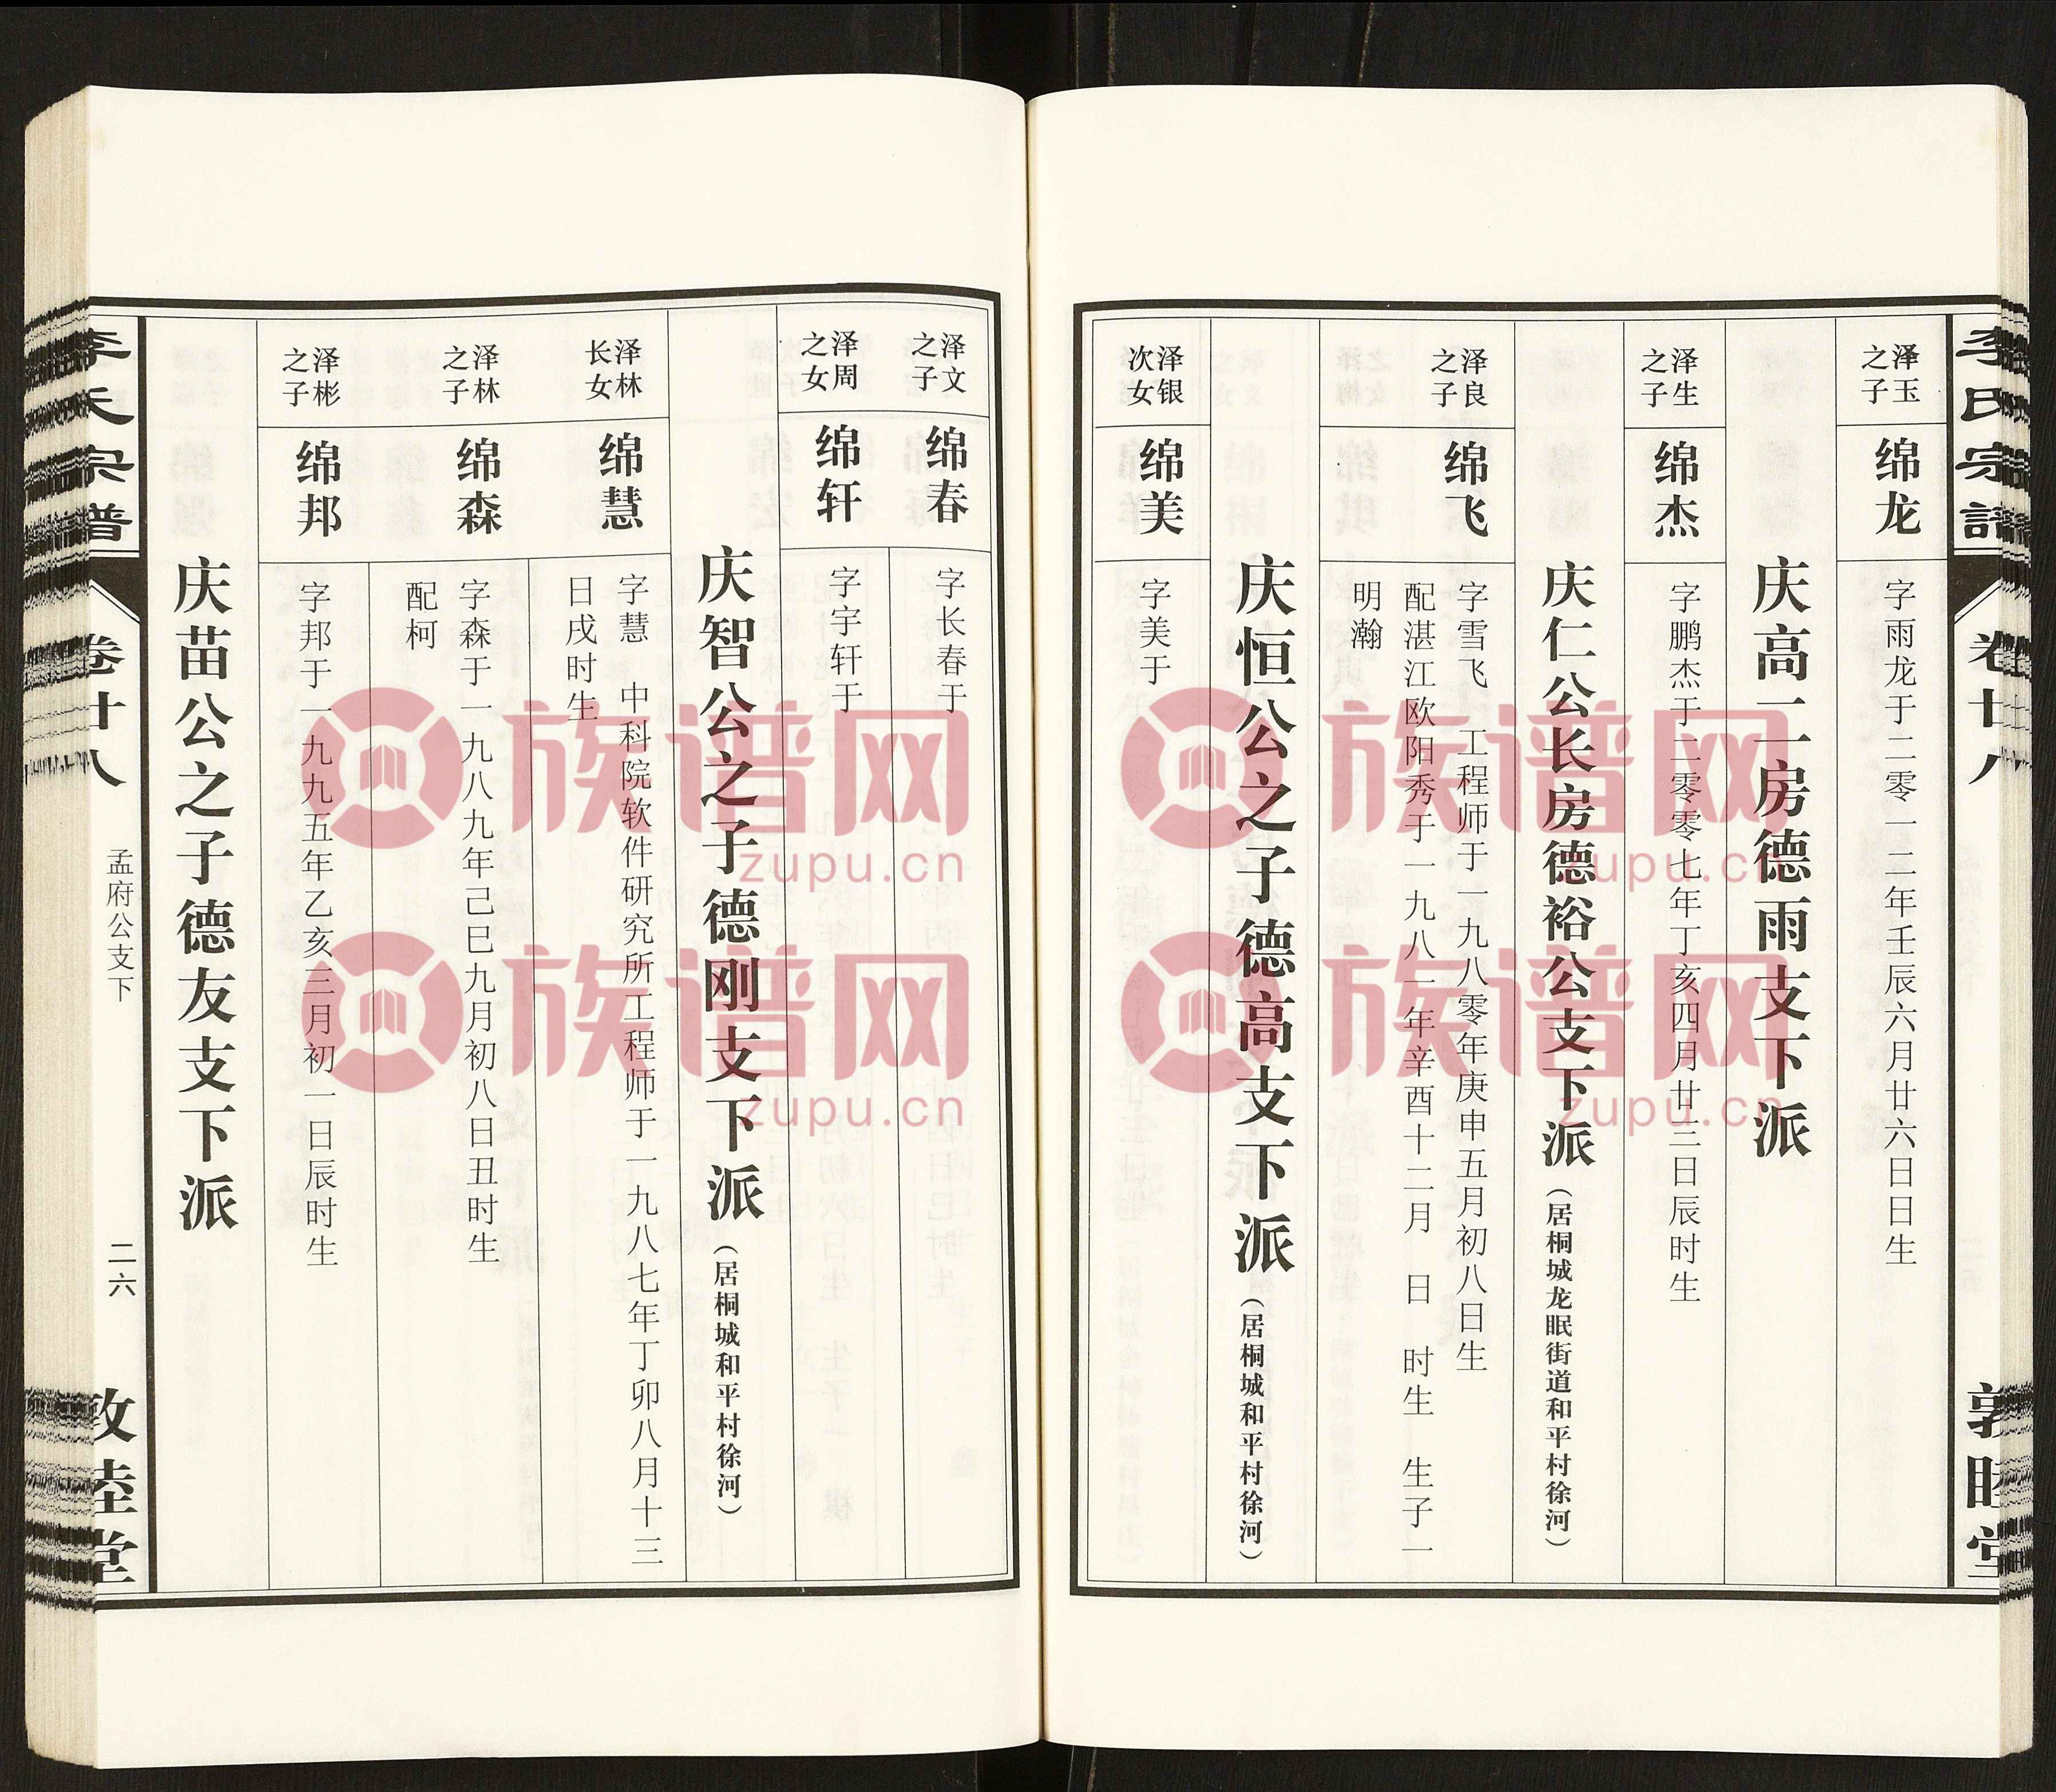 李氏宗譜
卷廿八
敦睦堂
泽玉之子
绵龙
字雨龙于二零一二年壬辰六月廿六日日生
庆高二房德雨支下派
泽生之子
绵杰
字鹏杰于二零零七年丁亥四月廿三日辰时生
庆仁公长房德裕公支下派（居桐城龙眠街道和平村徐河）
泽良之子
绵飞
字雪飞 工程师于一九八零年庚申五月初八日生
配湛江欧阳秀于一九八一年辛酉十二月 日 时生 生子一
明瀚
庆恒公之子德高支下派（居桐城和平村徐河）
泽银次女
绵美
字美于
泽文之子
绵春
字长春于
泽周之女
绵轩
字宇轩于
庆智公之子德刚支下派（居桐城和平村徐河）
泽林长女
绵慧
字慧 中科院软件研究所工程师于一九八七年丁卯八月十三
日戌时生
泽林之子
绵森
字森于一九八九年己巳九月初八日丑时生
配柯
泽彬之子
绵邦
字邦于一九九五年乙亥三月初一日辰时生
庆苗公之子德友支下派
李氏宗譜
卷廿八
孟府公支下
二六
敦睦堂
族谱网
zupu.cn
族谱网
zupu.cn
族谱网
zupu.cn
族谱网
zupu.cn